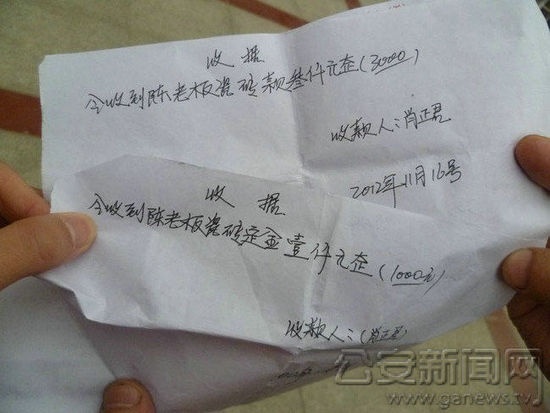 收据
今收到陈老板瓷砖款叁仟元整(3000)
收款人:肖正君
2012年11月16号
收据
今收到陈老板瓷砖定金壹仟元整(1000元)
收款人:(肖正君)
公安新闻网
www.ganews.tv